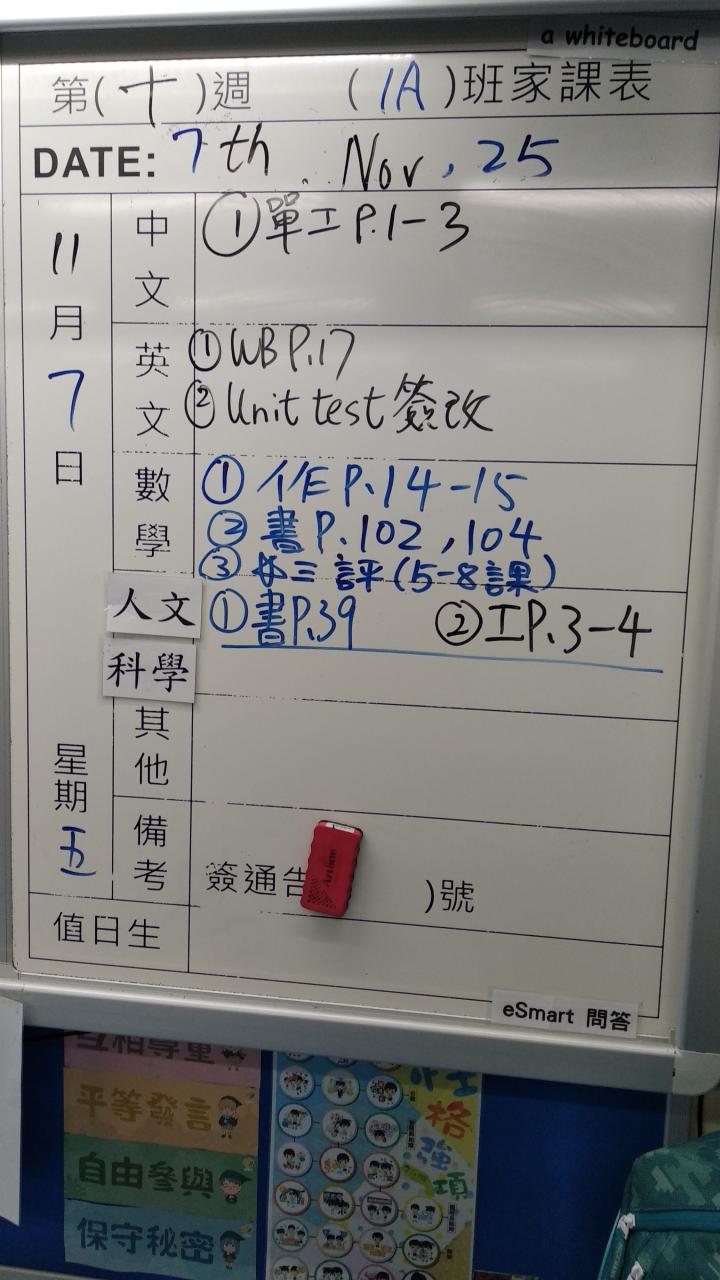 a whiteboard
第(十)週 (1A)班家課表
DATE: 7th. Nov, 25
11月7日
星期五
中文
①單工P.1-3
英文
①WB P.17
②Unit test簽改
數學
①作P.14-15
②書P.102,104
③ 三評(5-8課)
人文
①書P.39 ②工P.3-4
科學
其他
備考
簽通告 )號
值日生
eSmart 問答
互相尊重
平等發言
自由參與
保守秘密
格
強
項